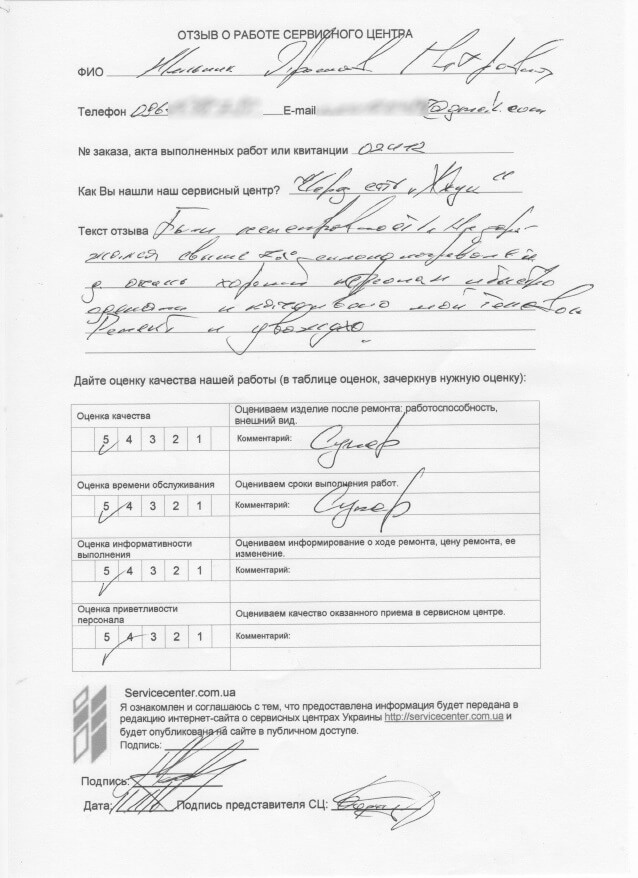 ОТЗЫВ О РАБОТЕ СЕРВИСНОГО ЦЕНТРА
ФИО Мельник
Телефон 096- E-mail @gmail.com
№ заказа, акта выполненных работ или квитанции 02412
Как Вы нашли наш сервисный центр? Через сеть
Текст отзыва Были
свыше
очень хороший персонал
и мой
Ремонт и уважаю
Дайте оценку качества нашей работы (в таблице оценок, зачеркнув нужную оценку):
Оценка качества Оцениваем изделие после ремонта: работоспособность, внешний вид.
5 4 3 2 1 Комментарий: Супер
Оценка времени обслуживания Оцениваем сроки выполнения работ.
5 4 3 2 1 Комментарий: Супер
Оценка информативности выполнения Оцениваем информирование о ходе ремонта, цену ремонта, ее изменение.
5 4 3 2 1 Комментарий:
Оценка приветливости персонала Оцениваем качество оказанного приема в сервисном центре.
5 4 3 2 1 Комментарий:
Servicecenter.com.ua
Я ознакомлен и соглашаюсь с тем, что предоставлена информация будет передана в
редакцию интернет-сайта о сервисных центрах Украины http://servicecenter.com.ua и
будет опубликована на сайте в публичном доступе.
Подпись:
Подпись:
Дата: Подпись представителя СЦ: